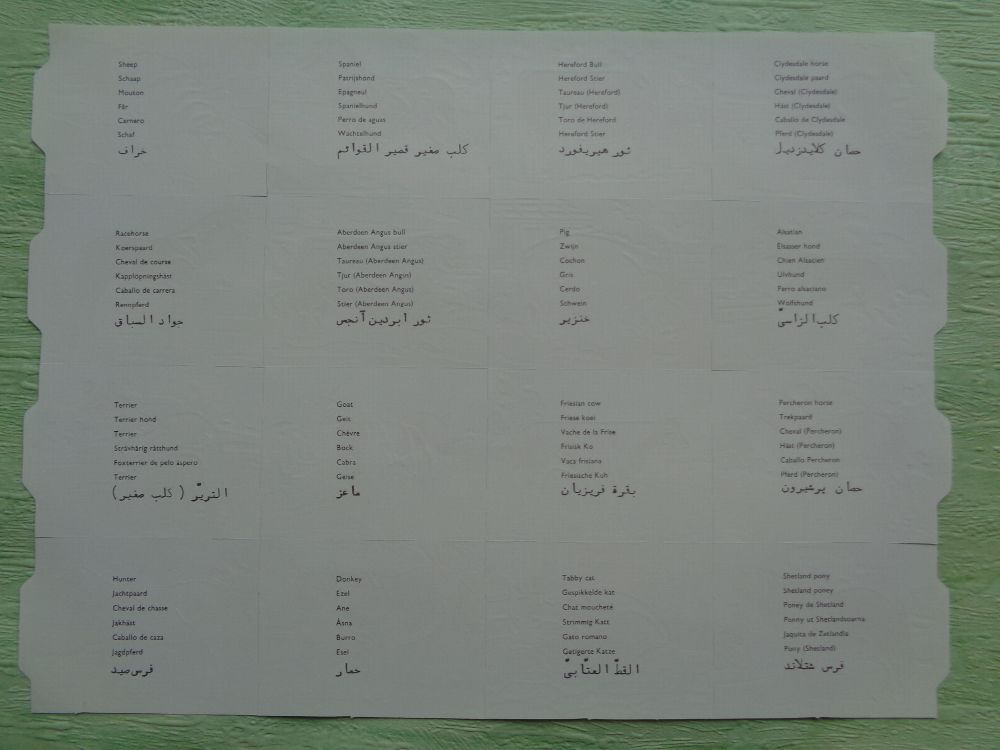 Sheep
Schaap
Mouton
Får
Carnero
Schaf
خراف
Spaniel
Patrijshond
Epagneul
Spanielhund
Perro de aguas
Wachtelhund
كلب صغير قصير القوائم
Hereford Bull
Hereford Stier
Taureau (Hereford)
Tjur (Hereford)
Toro de Hereford
Hereford Stier
ثور هيريفورد
Clydesdale horse
Clydesdale paard
Cheval (Clydesdale)
Häst (Clydesdale)
Caballo de Clydesdale
Pferd (Clydesdale)
حصان كلايدزديل
Racehorse
Koerspaard
Cheval de course
Kapplöpningshäst
Caballo de carrera
Rennpferd
جواد السباق
Aberdeen Angus bull
Aberdeen Angus stier
Taureau (Aberdeen Angus)
Tjur (Aberdeen Angus)
Toro (Aberdeen Angus)
Stier (Aberdeen Angus)
ثور ابردين آنجس
Pig
Zwijn
Cochon
Gris
Cerdo
Schwein
خنزير
Alsatian
Elsasser hond
Chien Alsacien
Ulvhund
Perro alsaciano
Wolfshund
كلب الزاسيّ
Terrier
Terrier hond
Terrier
Strävhårig råtthund
Foxterrier de pelo aspero
Terrier
التريّر (كلب صغير)
Goat
Geit
Chèvre
Bock
Cabra
Geise
ماعز
Friesian cow
Friese koei
Vache de la Frise
Frisisk Ko
Vaca frisiana
Friesische Kuh
بقرة فريزيان
Percheron horse
Trekpaard
Cheval (Percheron)
Häst (Percheron)
Caballo Percheron
Pferd (Percheron)
حصان پرشيرون
Hunter
Jachtpaard
Cheval de chasse
Jakhäst
Caballo de caza
Jagdpferd
فرس صيد
Donkey
Ezel
Ane
Åsna
Burro
Esel
حمار
Tabby cat
Gespikkelde kat
Chat moucheté
Strimmig Katt
Gato romano
Getigerte Katze
القطّ العتّابيّ
Shetland pony
Shetland poney
Poney de Shetland
Ponny ut Shetlandsoarna
Jaquita de Zetlandia
Pony (Shetland)
فرس شتلاند